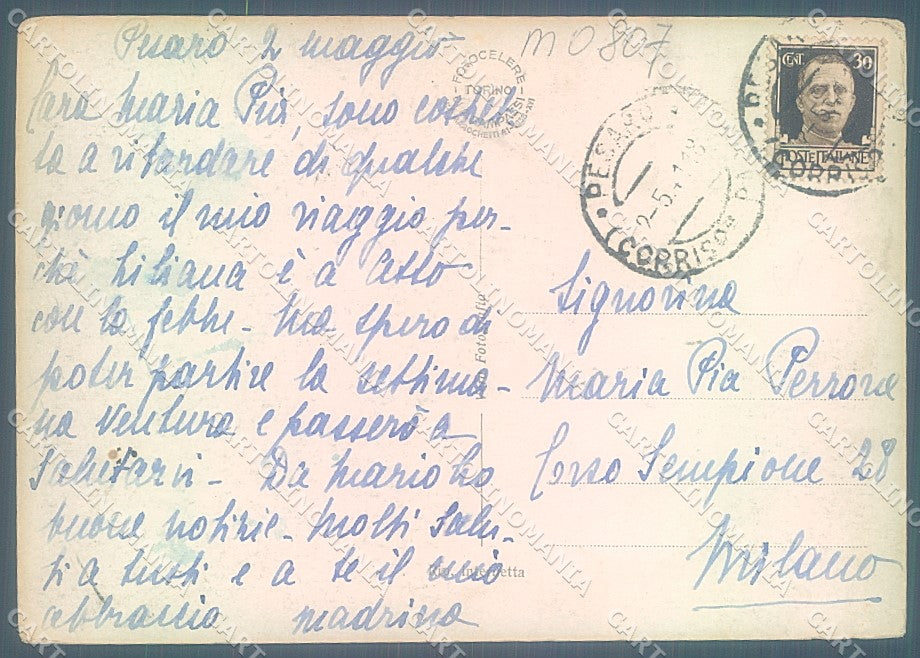 Pesaro 2 maggio
Cara Maria Pia, sono costret
ta a ritardare di qualche
giorno il mio viaggio per-
chè Liliana è a letto
con la febbre - Ma spero di
poter partire la settima-
na ventura e passerò a
salutarvi - Da Mario ho
buone notizie - Molti salu-
ti a tutti e a te il mio
abbraccio madrina
M0807
FOTOCELERE
TORINO
PESARO
2-5-
(CORRISP
CENT. 30
POSTE ITALIANE
Signorina
Maria Pia Perrone
Corso Sempione 28
Milano
Rip. Interdetta
CARTOLINOMANIA